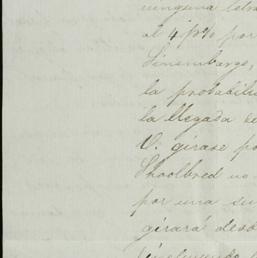 ninguna letra
al 4 p% por
Sinembargo,
la probabili
la llegada de
V. girase po
Shoolbred no
por una su
girará desd